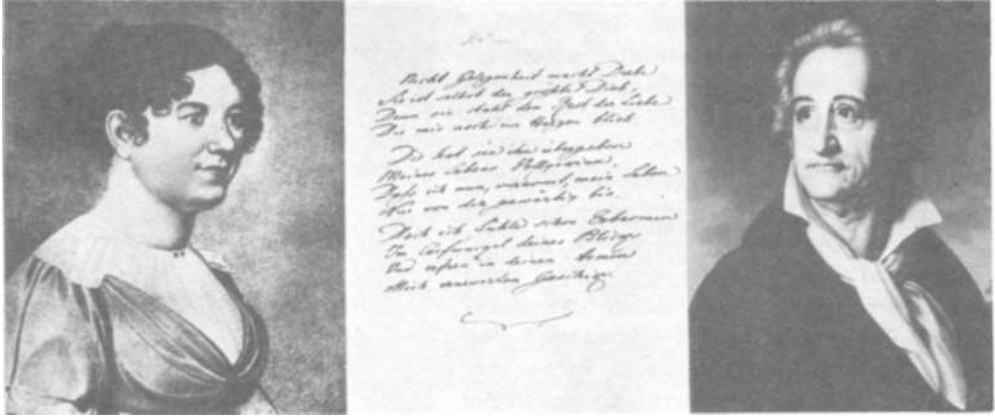 Nicht Gelegenheit macht Diebe
Sie ist selbst der größte Dieb,
Denn sie stahl den Rest der Liebe
Die mir noch im Herzen blieb.
Dir hat sie ihn übergeben
Meines Lebens Vollgewinn,
Daß ich nun, verarmt, mein Leben
Nur von dir gewärtig bin.
Doch ich fühle schon Erbarmen
Im Carfunkel deines Blicks
Und erfreu in deinen Armen
Mich erneuerten Geschicks.